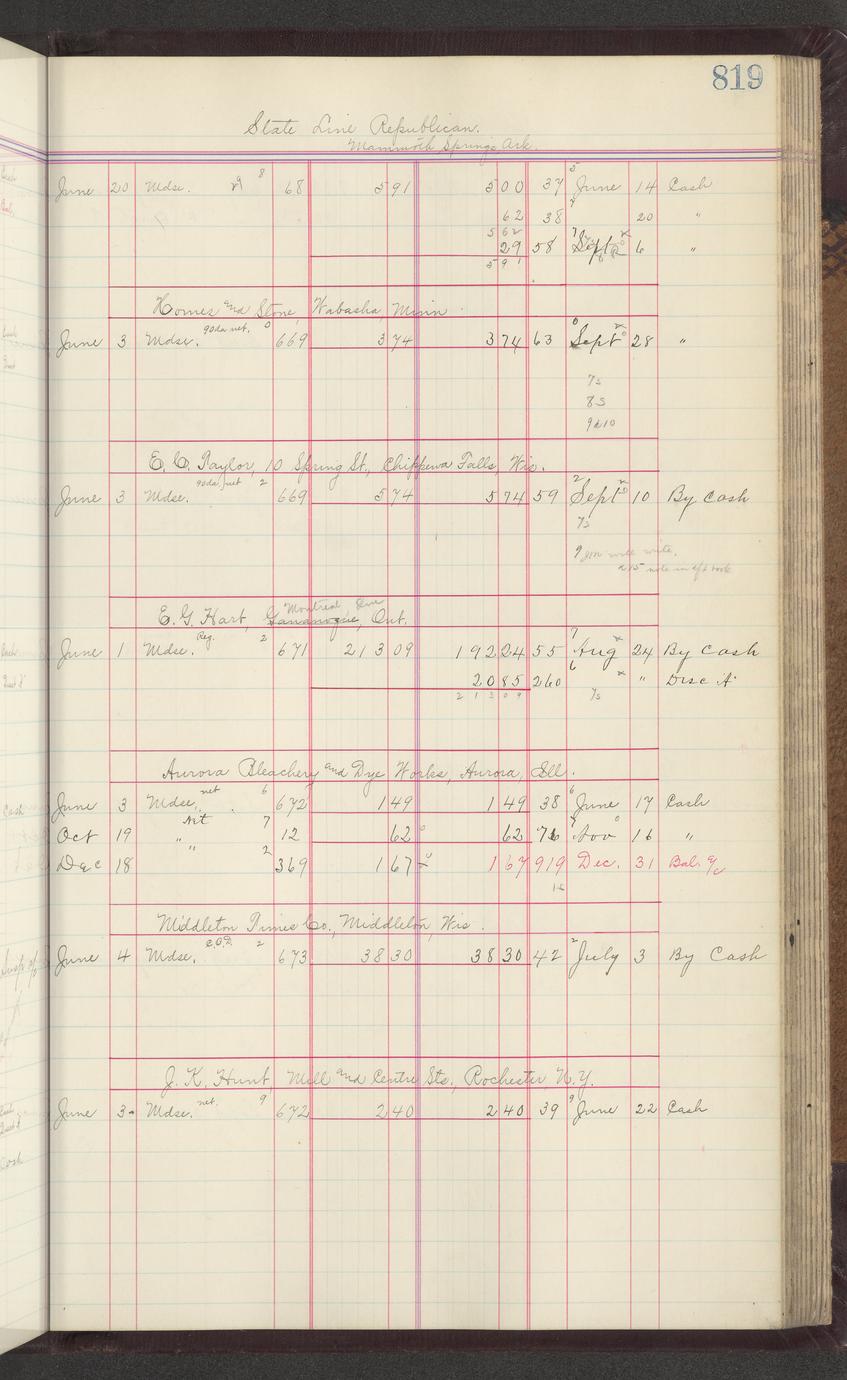 819
State Line Republican.
Mammoth Springs Ark.
June 20 Mdse. 8 68 591 500 37 5 June 14 Cash
62 38 7 20 "
562
29 58 7 Sept 6 "
591
Homes and Stone, Wabasha Minn
June 3 Mdse. 90 da. net. 0 669 374 374 63 0 Sept 28 "
7s
8s
9 10
E. C. Taylor, 10 Spring St., Chippewa Falls, Wis.
June 3 Mdse. 90 da. net 2 669 574 574 59 2 Sept 10 By Cash
7s
9 will write.
note in
Montreal
E. G. Hart, Gananoque, Ont.
June 1 Mdse. Reg. 2 671 21309 19224 55 7 Aug 24 By Cash
2085 260 6 " Disc A
21309 7s
Aurora Bleachery and Dye Works, Aurora, Ill.
June 3 Mdse. net 6 672 149 149 38 6 June 17 Cash
Oct 19 " Net 7 12 62 62 76 Nov 16 "
Dec 18 " 2 369 167 167 919 Dec. 31 Bal. a/c
Middleton Times Co., Middleton, Wis.
June 4 Mdse. C.O.D. 2 673 3830 3830 42 2 July 3 By Cash
J. K. Hunt, Mill and Centre Sts., Rochester N.Y.
June 3 Mdse. net. 9 672 240 240 39 9 June 22 Cash